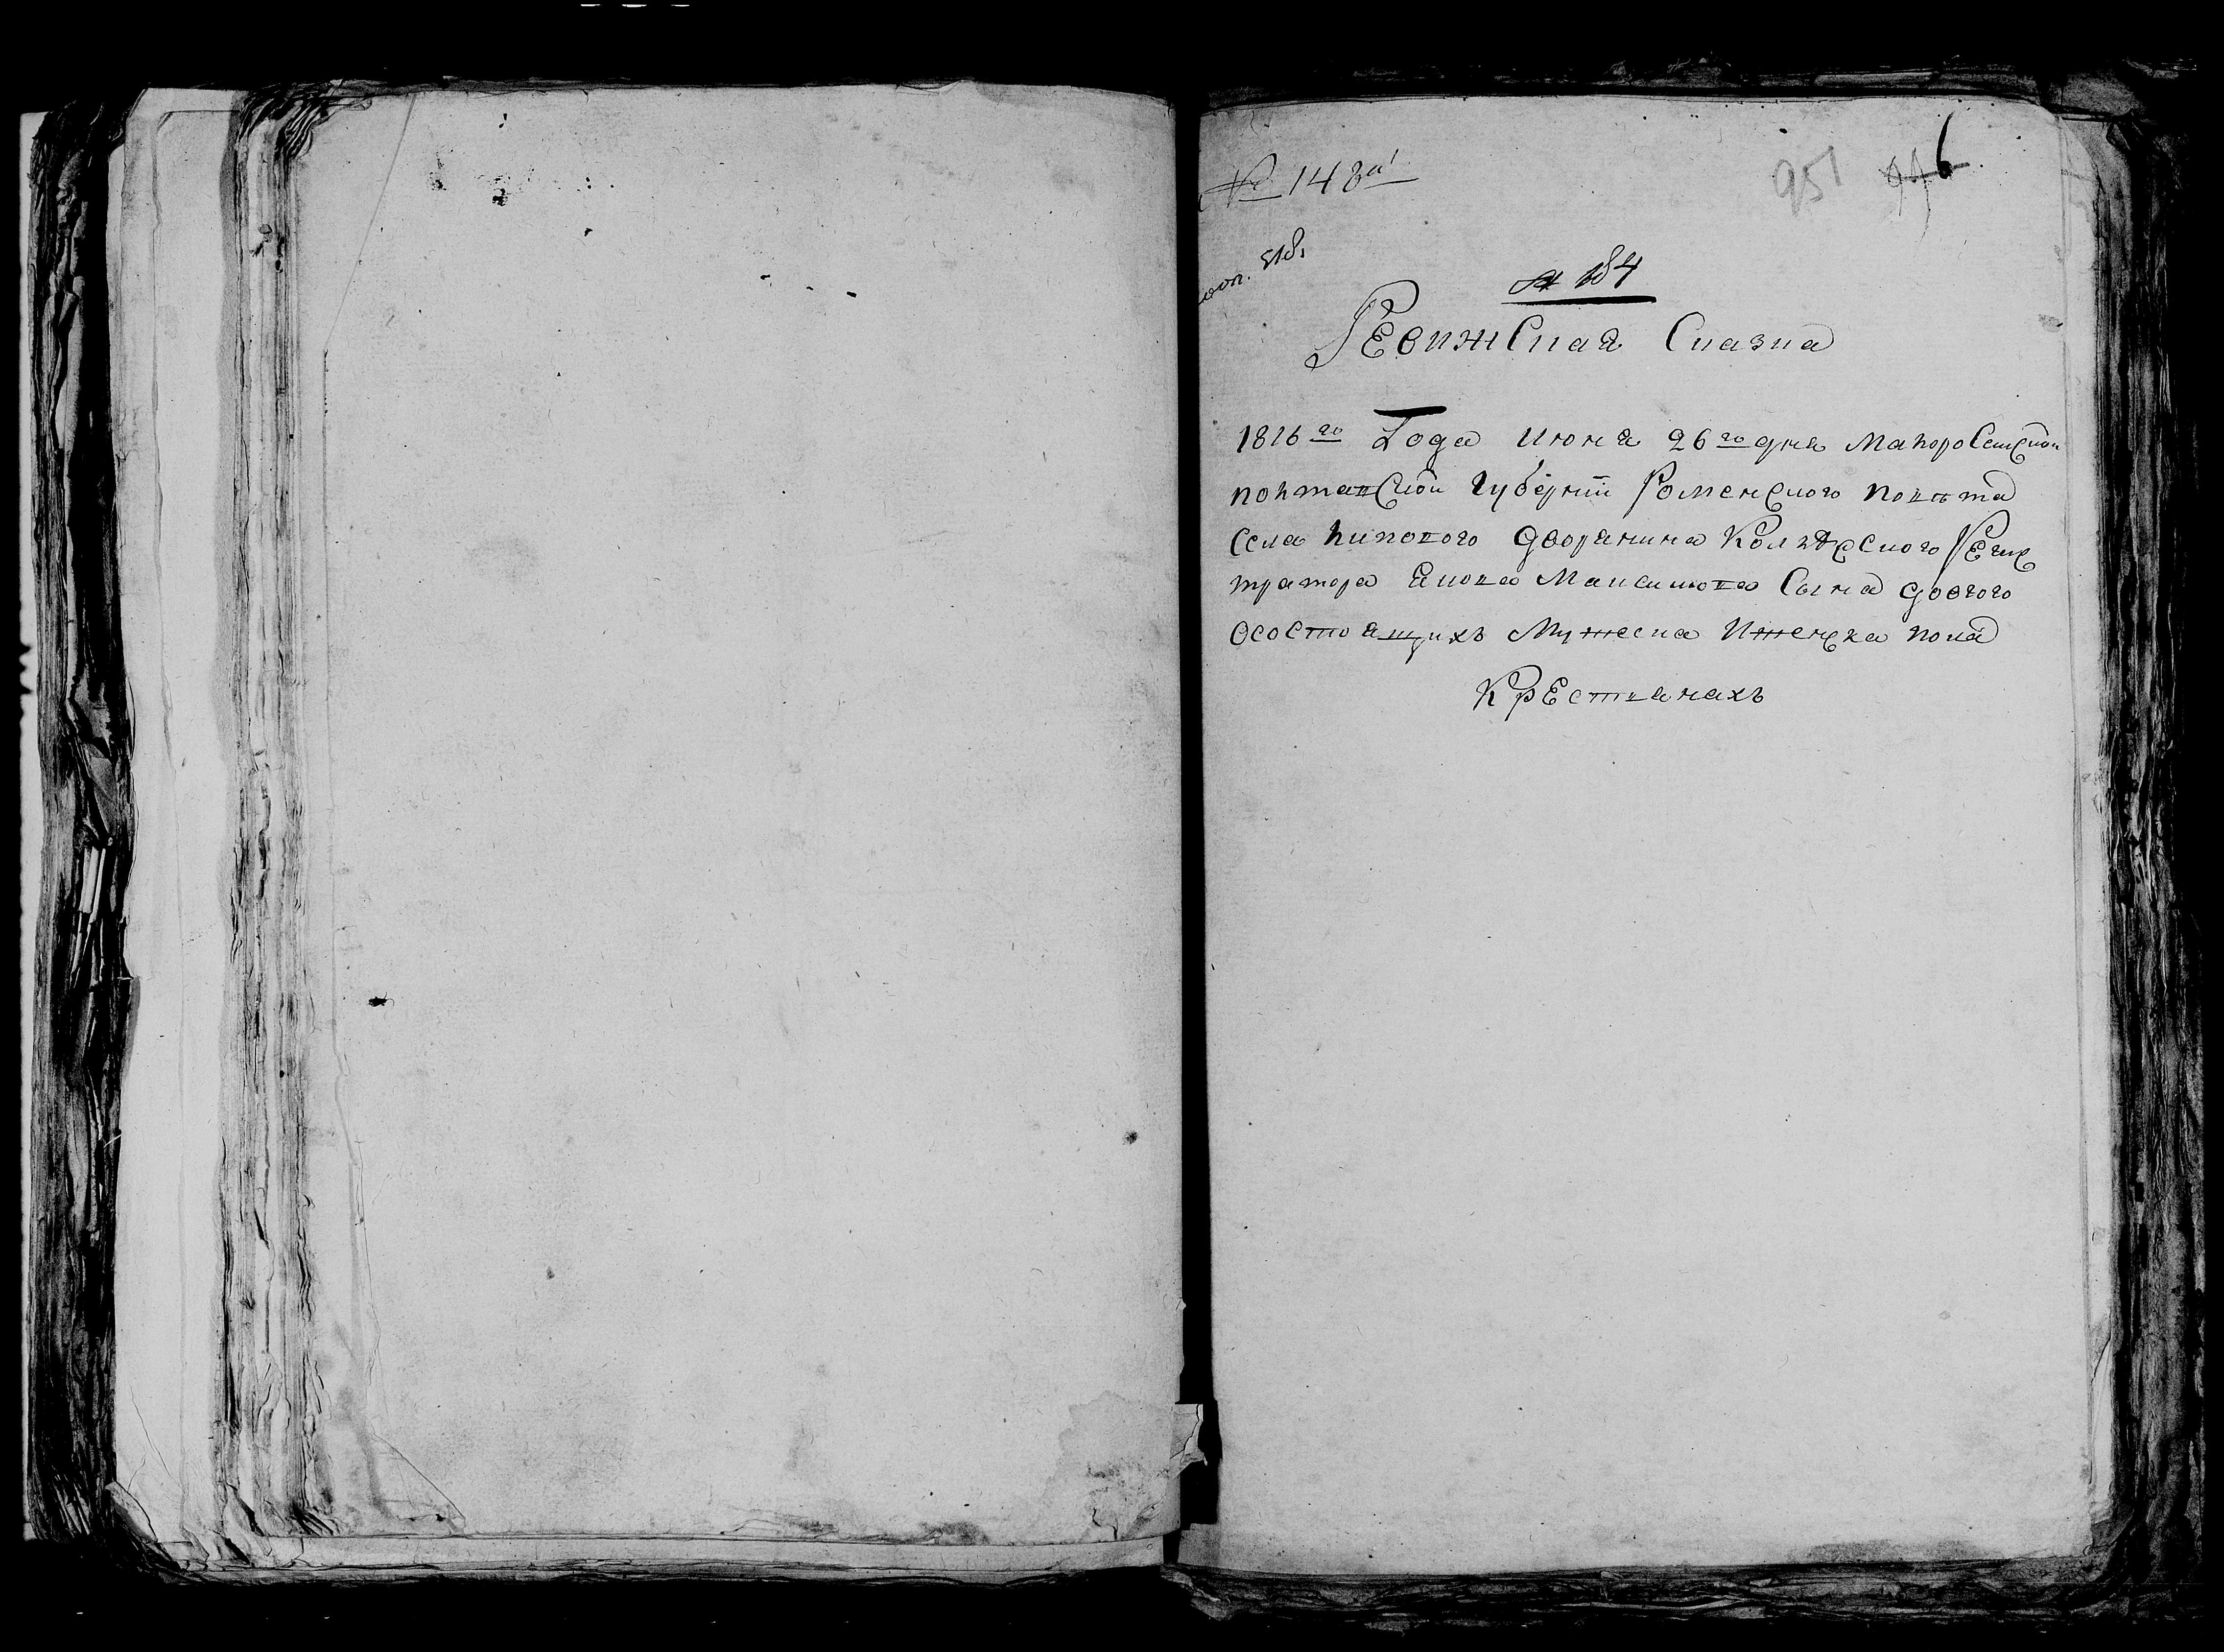 № 148й
951
6
518
184
Ревижская Сказка
1816го Года июня 26го дня Малоросейской
полтавской губерний Роменского повѣта
села липового дворянина Колѣжского Регис
тратора Якова Максимова Сына довгого
осостоящихъ Мужеска Иженска пола
Крестьянахъ